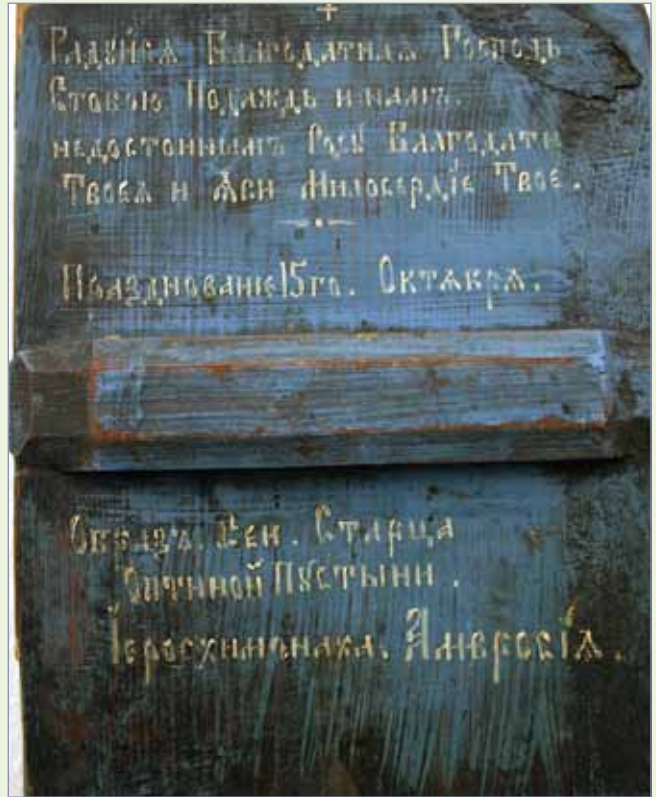 Радуйся Благодатная Господь
Стобою Подаждь и намъ.
недостойнымъ Росу Благодати
Твоея и Яви Милосердїе Твое.
Празднованіе 15го. Октября.
Образъ. Кел. Старца
Оптиной Пустыни.
Іеросхимонаха. Амвросїя.